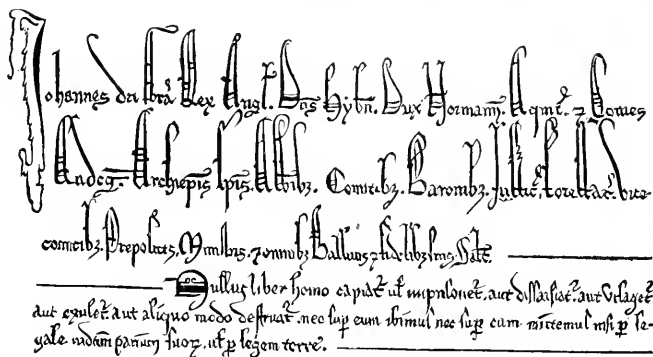 Johannes dei gra Rex Angl. Dns Hybn. Dux Normann. Aqnt. ⁊ Comes
Andeg. Archiepis Epis. Abbibz. Comitibz. Baronibz. Justic. Forestar. vice
comitibz. Prepositis, Ministris. ⁊ omnibz Ballivis ⁊ fidelibz suis. Salt.
Nullus liber homo capiat. ul imprisonet. aut dissaisiat. aut utlaget
aut exulet. aut aliquo modo destruat. nec sup eum ibimus nec sup eum mittemus nisi p le
gale iudicium parium suorz. ul p legem terre.